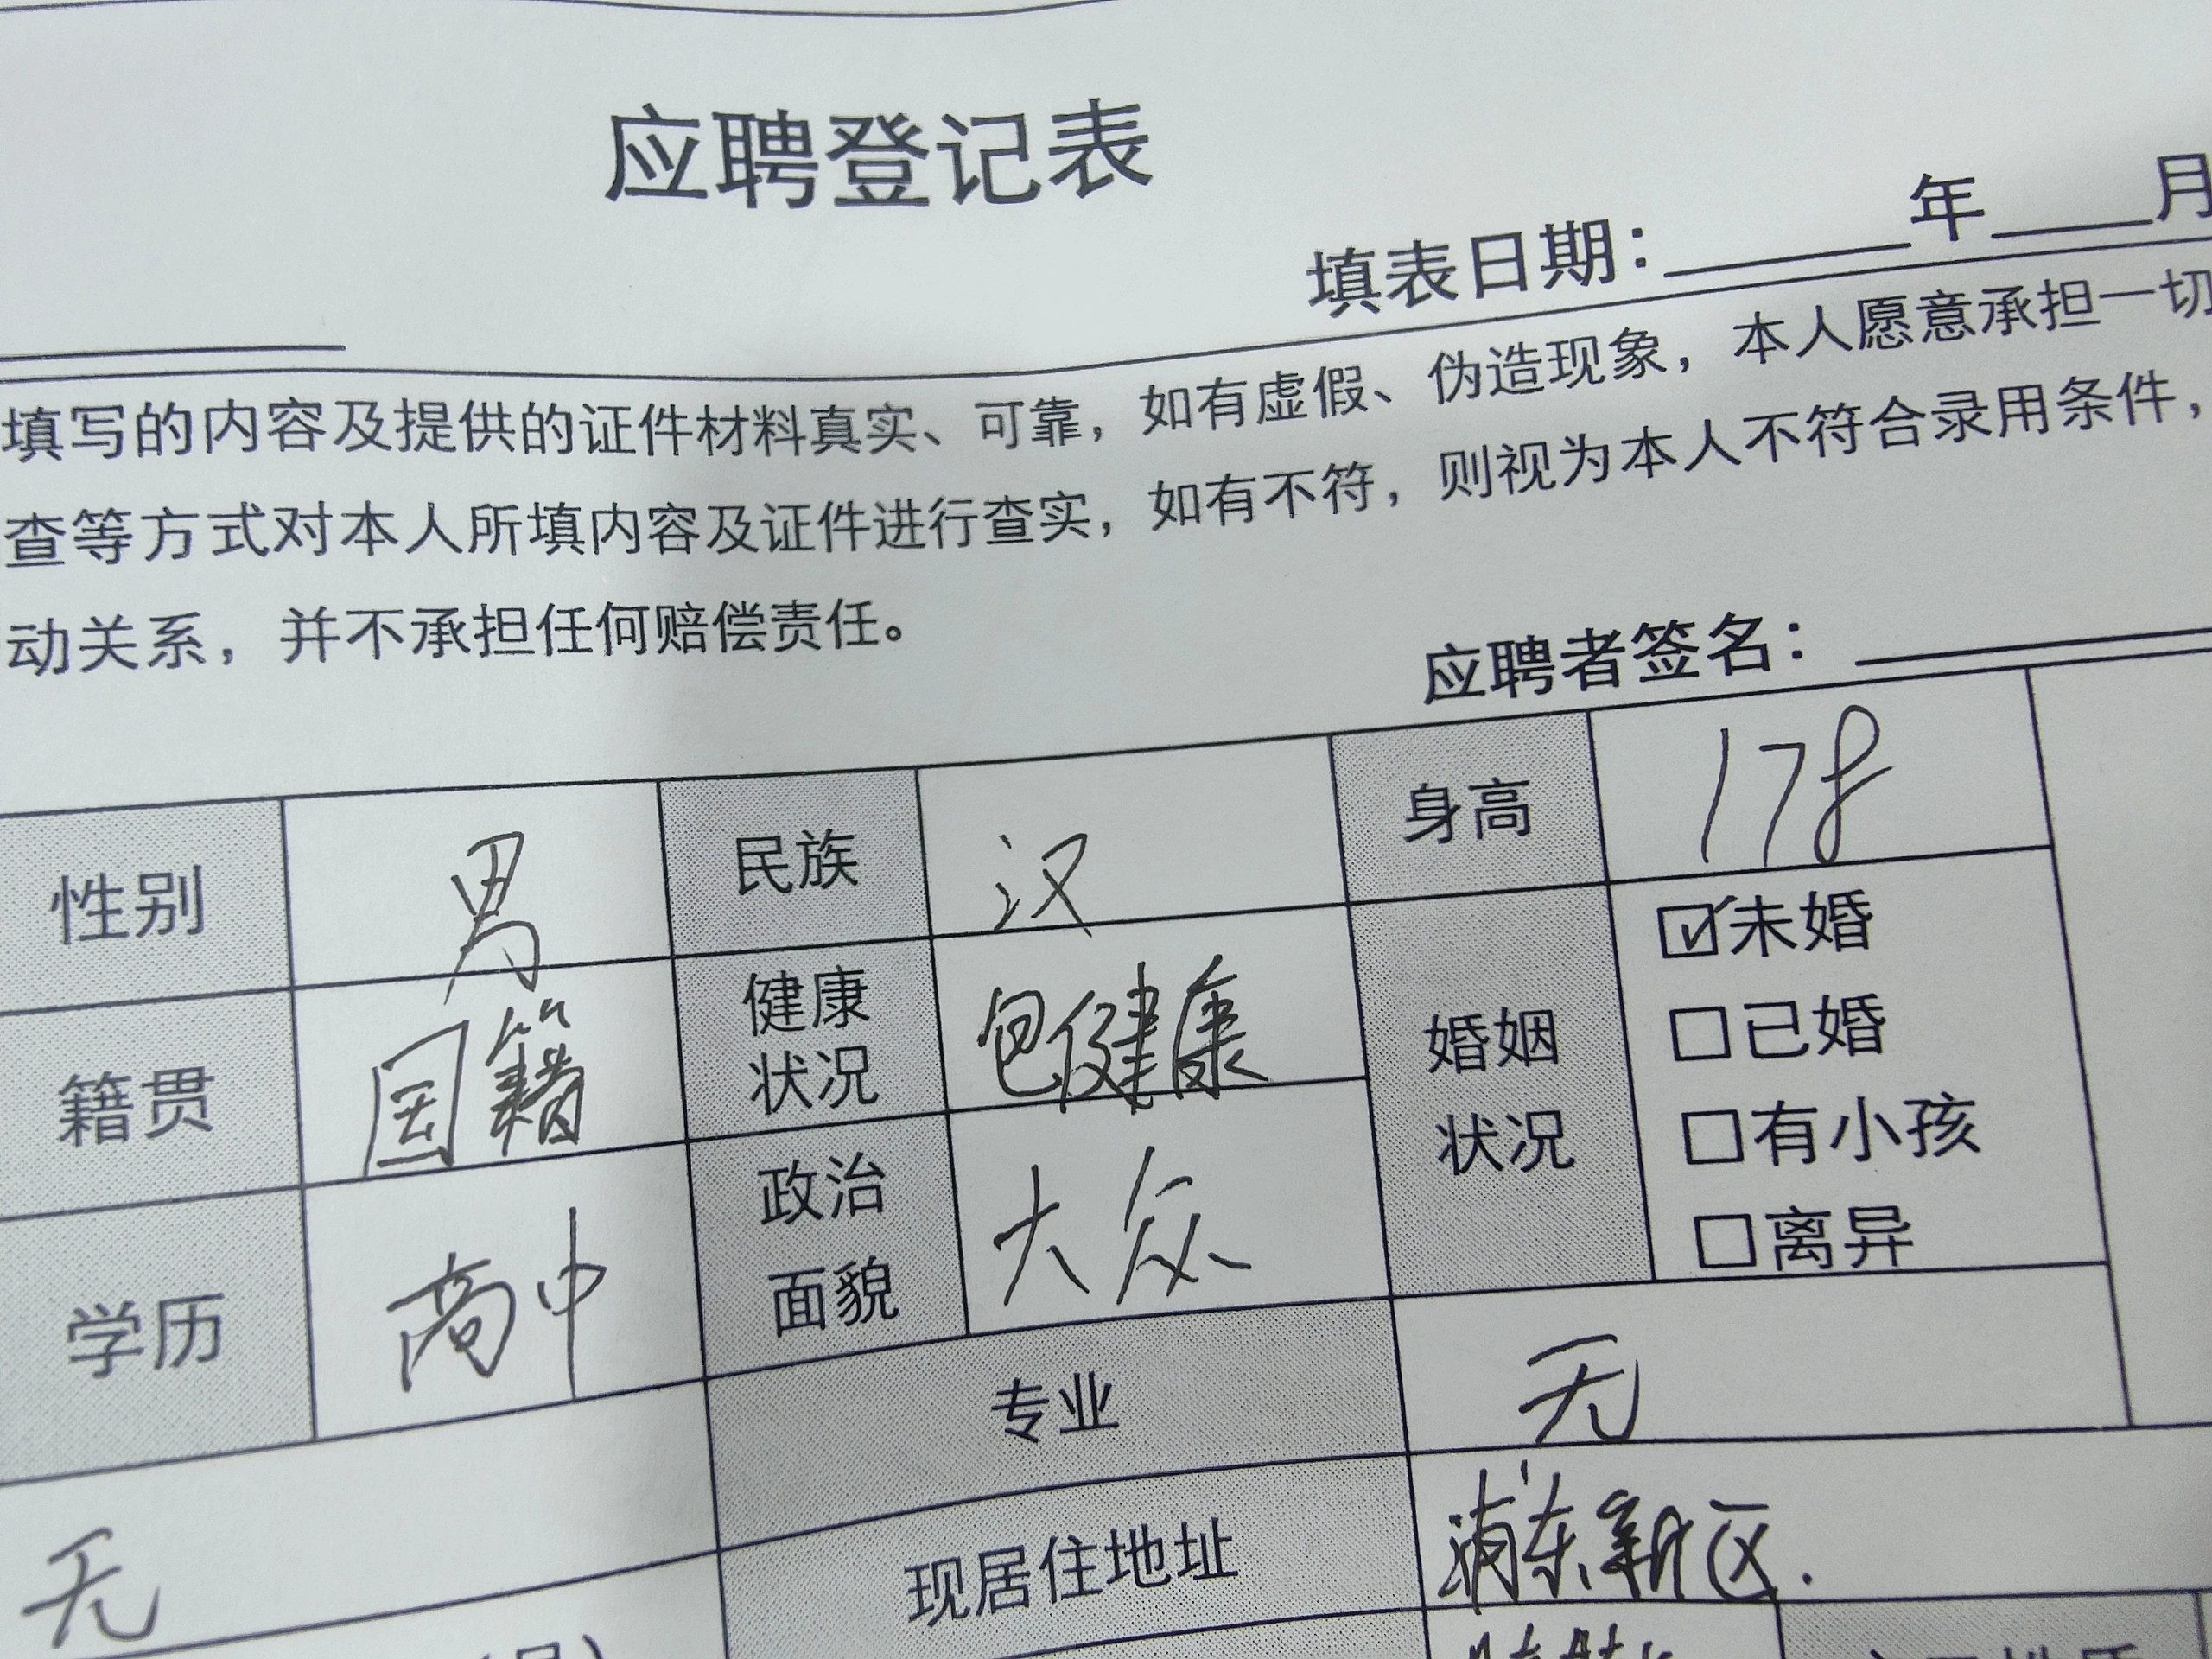 应聘登记表
填表日期：____年____月
填写的内容及提供的证件材料真实、可靠，如有虚假、伪造现象，本人愿意承担一切
查等方式对本人所填内容及证件进行查实，如有不符，则视为本人不符合录用条件，
动关系，并不承担任何赔偿责任。
应聘者签名：
性别 男 民族 汉 身高 178
籍贯 国籍 健康状况 包健康 婚姻状况 ☑未婚
□已婚
□有小孩
□离异
学历 高中 政治面貌 大众
专业 无
无 现居住地址 浦东新区.